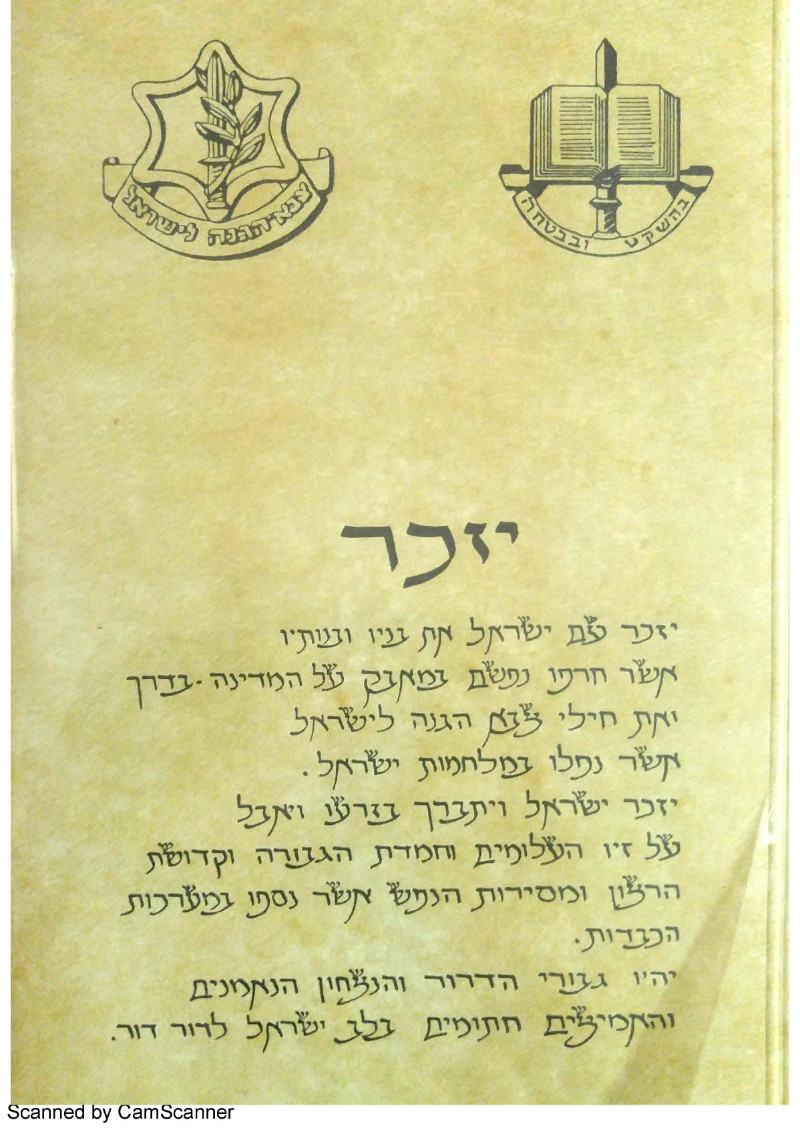 צבא הגנה לישראל
בהשקט ובבטחה
יזכר
יזכר עם ישראל את בניו ובנותיו
אשר חרפו נפשם במאבק על המדינה ·בדרך
ואת חילי צבא הגנה לישראל
אשר נפלו במלחמות ישראל.
יזכר ישראל ויתברך בזרעו ויאבל
על זיו העלומים וחמדת הגבורה וקדושת
הרצון ומסירות הנפש אשר נספו במערכות
הכבדות.
יהיו גבורי הדרור והנצחון הנאמנים
והאמיצים חתומים בלב ישראל לדור דור.
Scanned by CamScanner